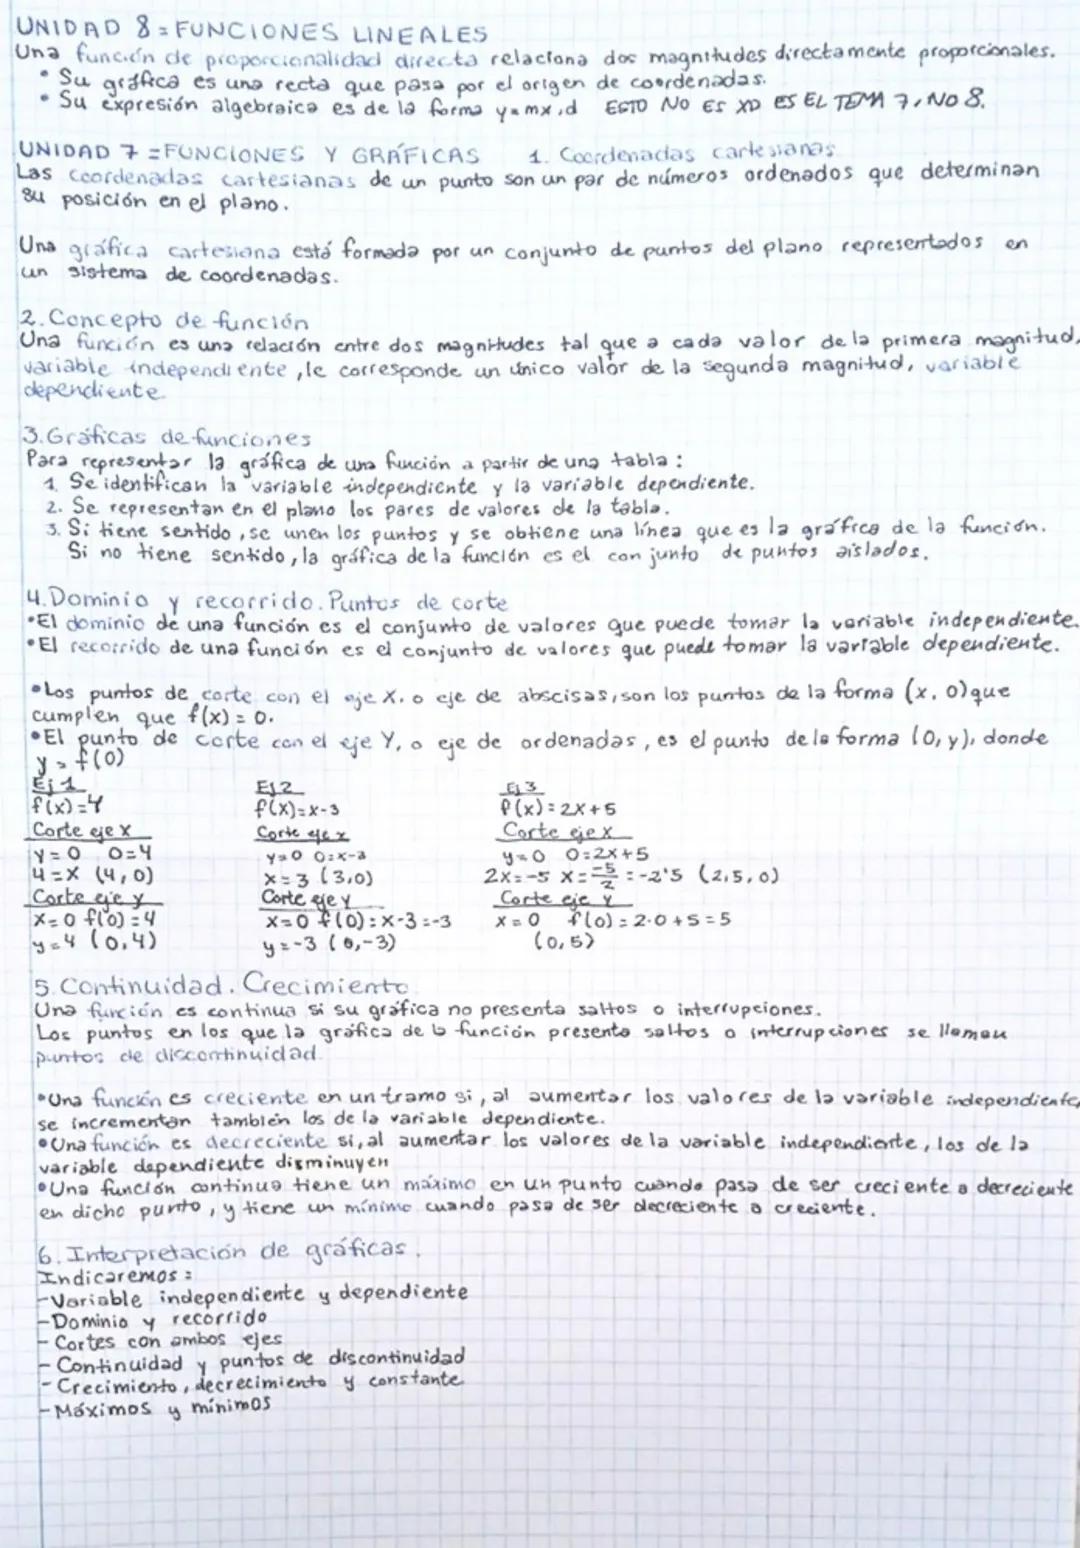 UNIDAD 8 = FUNCIONES LINEALES
Una función de proporcionalidad directa relaciona dos magnitudes directamente proporcionales.
• Su gráfica es una recta que pasa por el origen de coordenadas.
• Su expresión algebraica es de la forma y=mx,d ESTO NO ES XD ES EL TEMA 7, NO 8.
UNIDAD 7 = FUNCIONES Y GRÁFICAS 1. Coordenadas cartesianas
Las coordenadas cartesianas de un punto son un par de números ordenados que determinan
su posición en el plano.
Una gráfica cartesiana está formada por un conjunto de puntos del plano representados en
un sistema de coordenadas.
2. Concepto de función
Una función es una relación entre dos magnitudes tal que a cada valor de la primera magnitud,
variable independiente, le corresponde un único valor de la segunda magnitud, variable
dependiente.
3. Gráficas de funciones
Para representar la gráfica de una función a partir de una tabla:
1. Se identifican la variable independiente y la variable dependiente.
2. Se representan en el plano los pares de valores de la tabla.
3. Si tiene sentido, se unen los puntos y se obtiene una línea que es la gráfica de la función.
Si no tiene sentido, la gráfica de la función es el conjunto de puntos aislados.
4. Dominio y recorrido. Puntos de corte
•El dominio de una función es el conjunto de valores que puede tomar la variable independiente.
•El recorrido de una función es el conjunto de valores que puede tomar la variable dependiente.
•Los puntos de corte con el eje X, o eje de abscisas, son los puntos de la forma (x, 0) que
cumplen que f(x) = 0.
•El punto de corte con el eje Y, o eje de ordenadas, es el punto de la forma (0, y), donde
y = f(0)
Ej 1 Ej 2 Ej 3
f(x)=4 f(x)=x-3 f(x)=2x+5
Corte eje x Corte eje x Corte eje x
y=0 0=4 y=0 0=x-3 y=0 0=2x+5
4=x (4,0) x=3 (3,0) 2x=-5 x=-5/2=-2'5 (2,5,0)
Corte eje y Corte eje y Corte eje y
x=0 f(0)=4 x=0 f(0)=x-3=-3 x=0 f(0)=2·0+5=5
y=4 (0,4) y=-3 (0,-3) (0,5)
5. Continuidad. Crecimiento
Una función es continua si su gráfica no presenta saltos o interrupciones.
Los puntos en los que la gráfica de la función presenta saltos o interrupciones se llaman
puntos de discontinuidad.
•Una función es creciente en un tramo si, al aumentar los valores de la variable independiente,
se incrementan también los de la variable dependiente.
•Una función es decreciente si, al aumentar los valores de la variable independiente, los de la
variable dependiente disminuyen
•Una función continua tiene un máximo en un punto cuando pasa de ser creciente a decreciente
en dicho punto, y tiene un mínimo cuando pasa de ser decreciente a creciente.
6. Interpretación de gráficas.
Indicaremos:
-Variable independiente y dependiente
-Dominio y recorrido
-Cortes con ambos ejes
-Continuidad y puntos de discontinuidad
-Crecimiento, decrecimiento y constante
-Máximos y mínimos